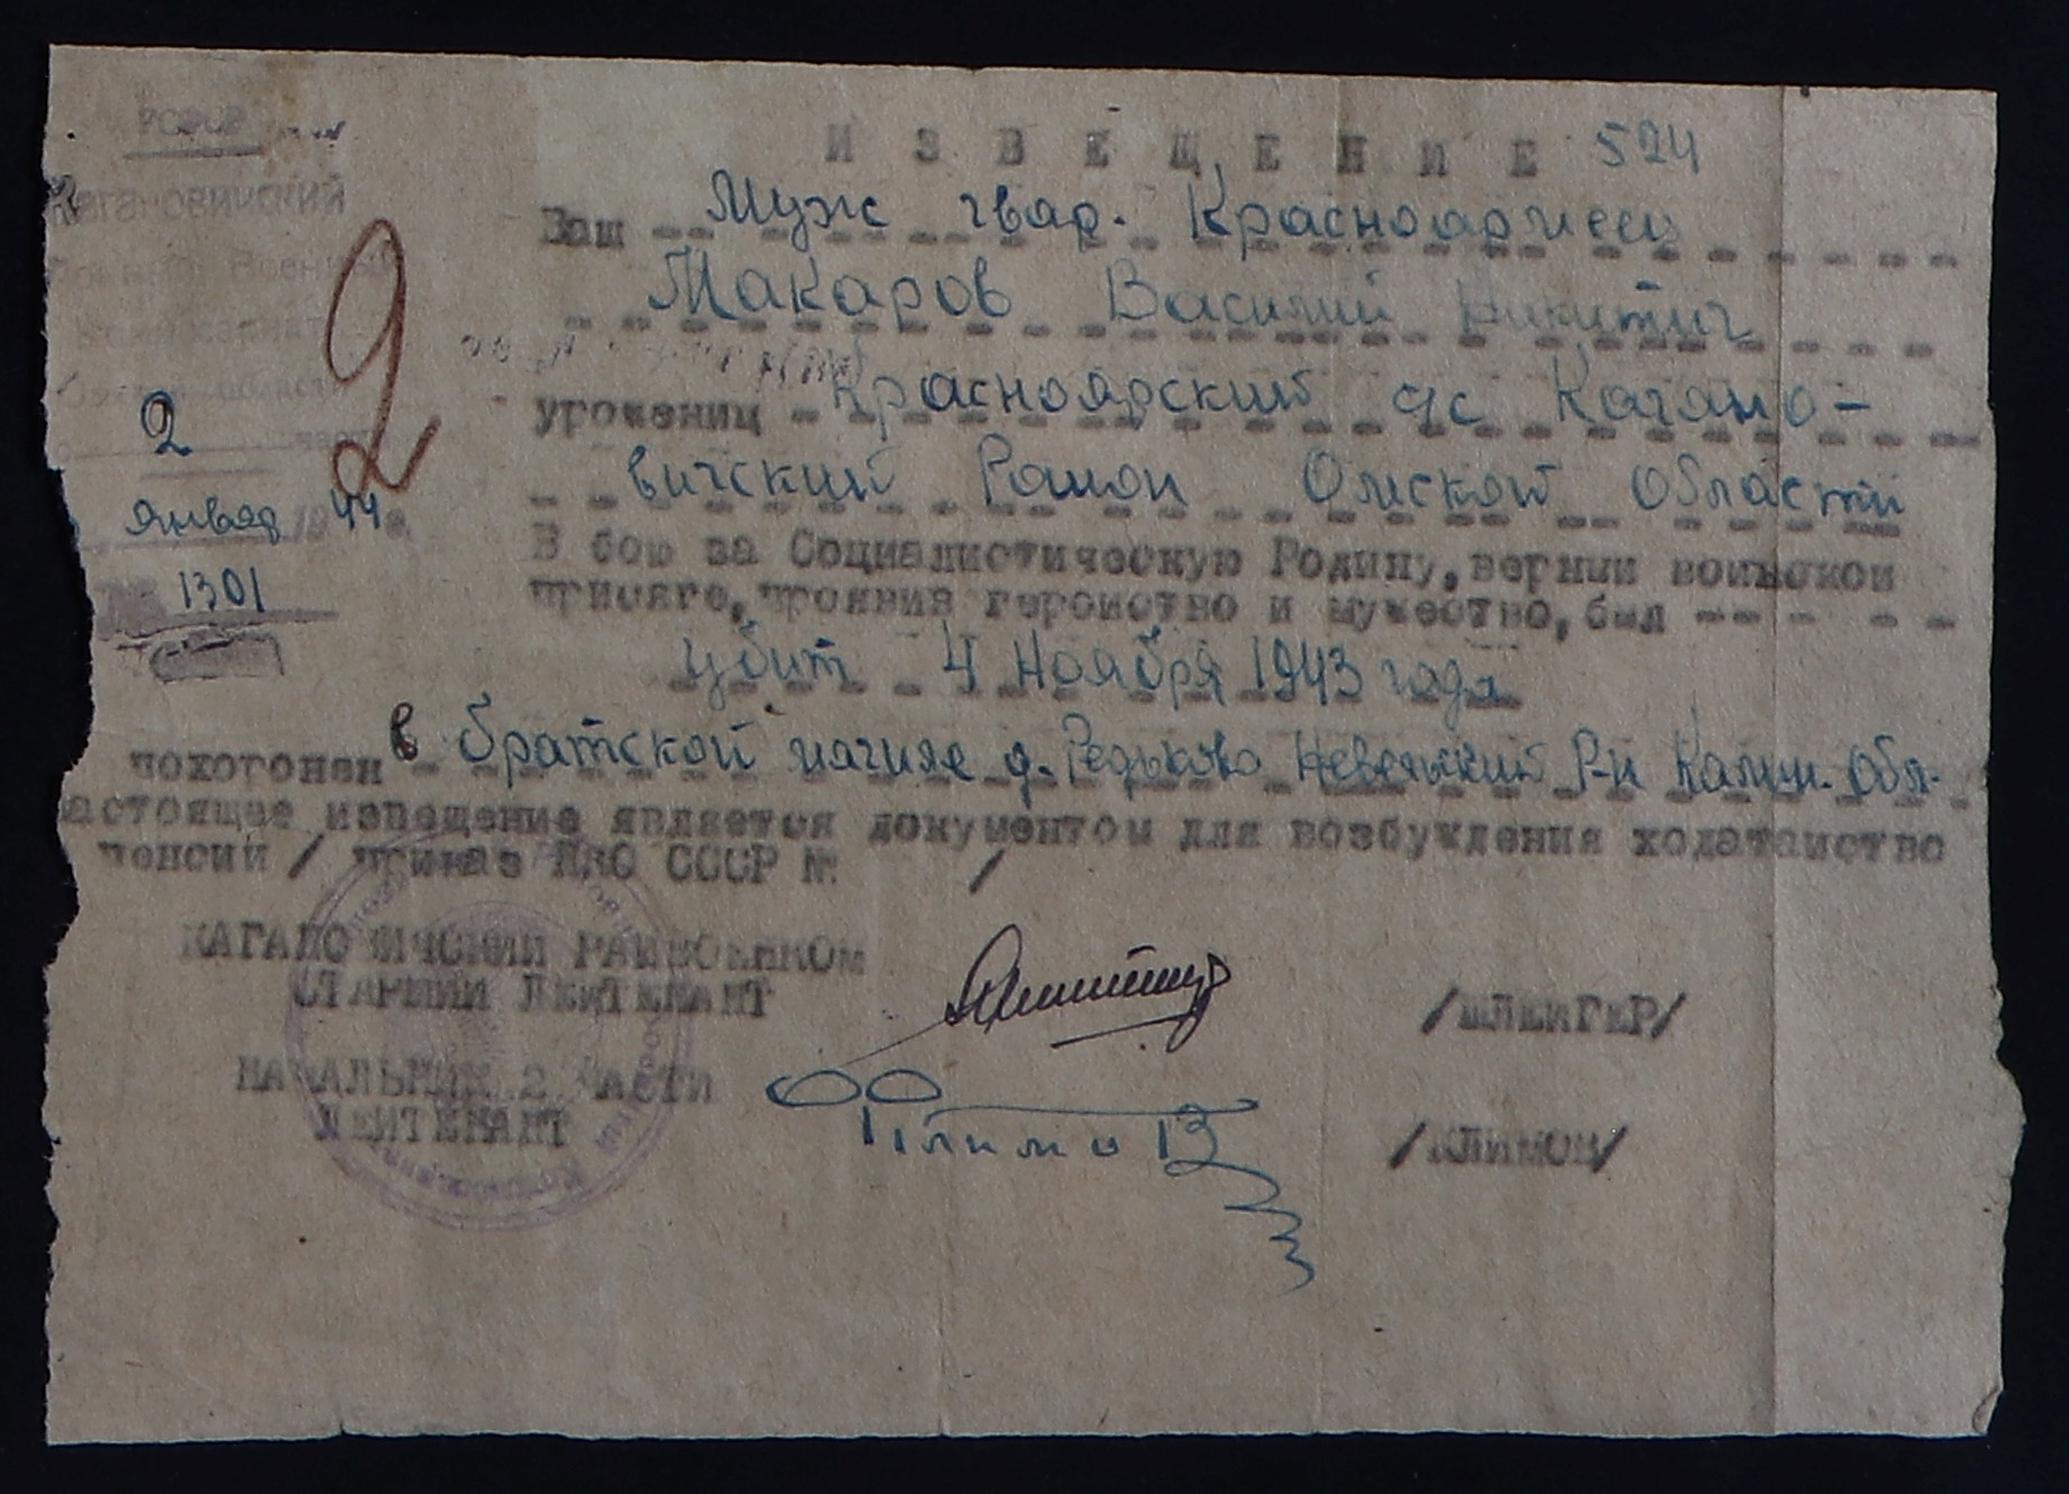 РСФСР
Кагановичский
Военный
области
2
часть
январ 1944 г.
№ 1301
2
ИЗВЕЩЕНИЕ 524
Ваш Муж гвар. Красноармеец
Макаров Василий Никитич
уроженец Красноярский с/с Кагано-
вичский Район Омской Области
В бою за Социалистическую Родину, верный воинской
присяге, проявив геройство и мужество, был
убит 4 Ноября 1943 года
похоронен в братской магиле д. Редьково Невельский Р-н Калин. Обл.
астоящее извещение является документом для возбуждения ходатайство
пенсии / приказ НКО СССР № /
КАГАНОВИЧСКИЙ РАЙВОЕНКОМ
СТАРШИЙ ЛЕЙТЕНАНТ /ШЛЕЙГЕР/
НАЧАЛЬНИК 2 ЧАСТИ
ЛЕЙТЕНАНТ Климов /КЛИМОВ/